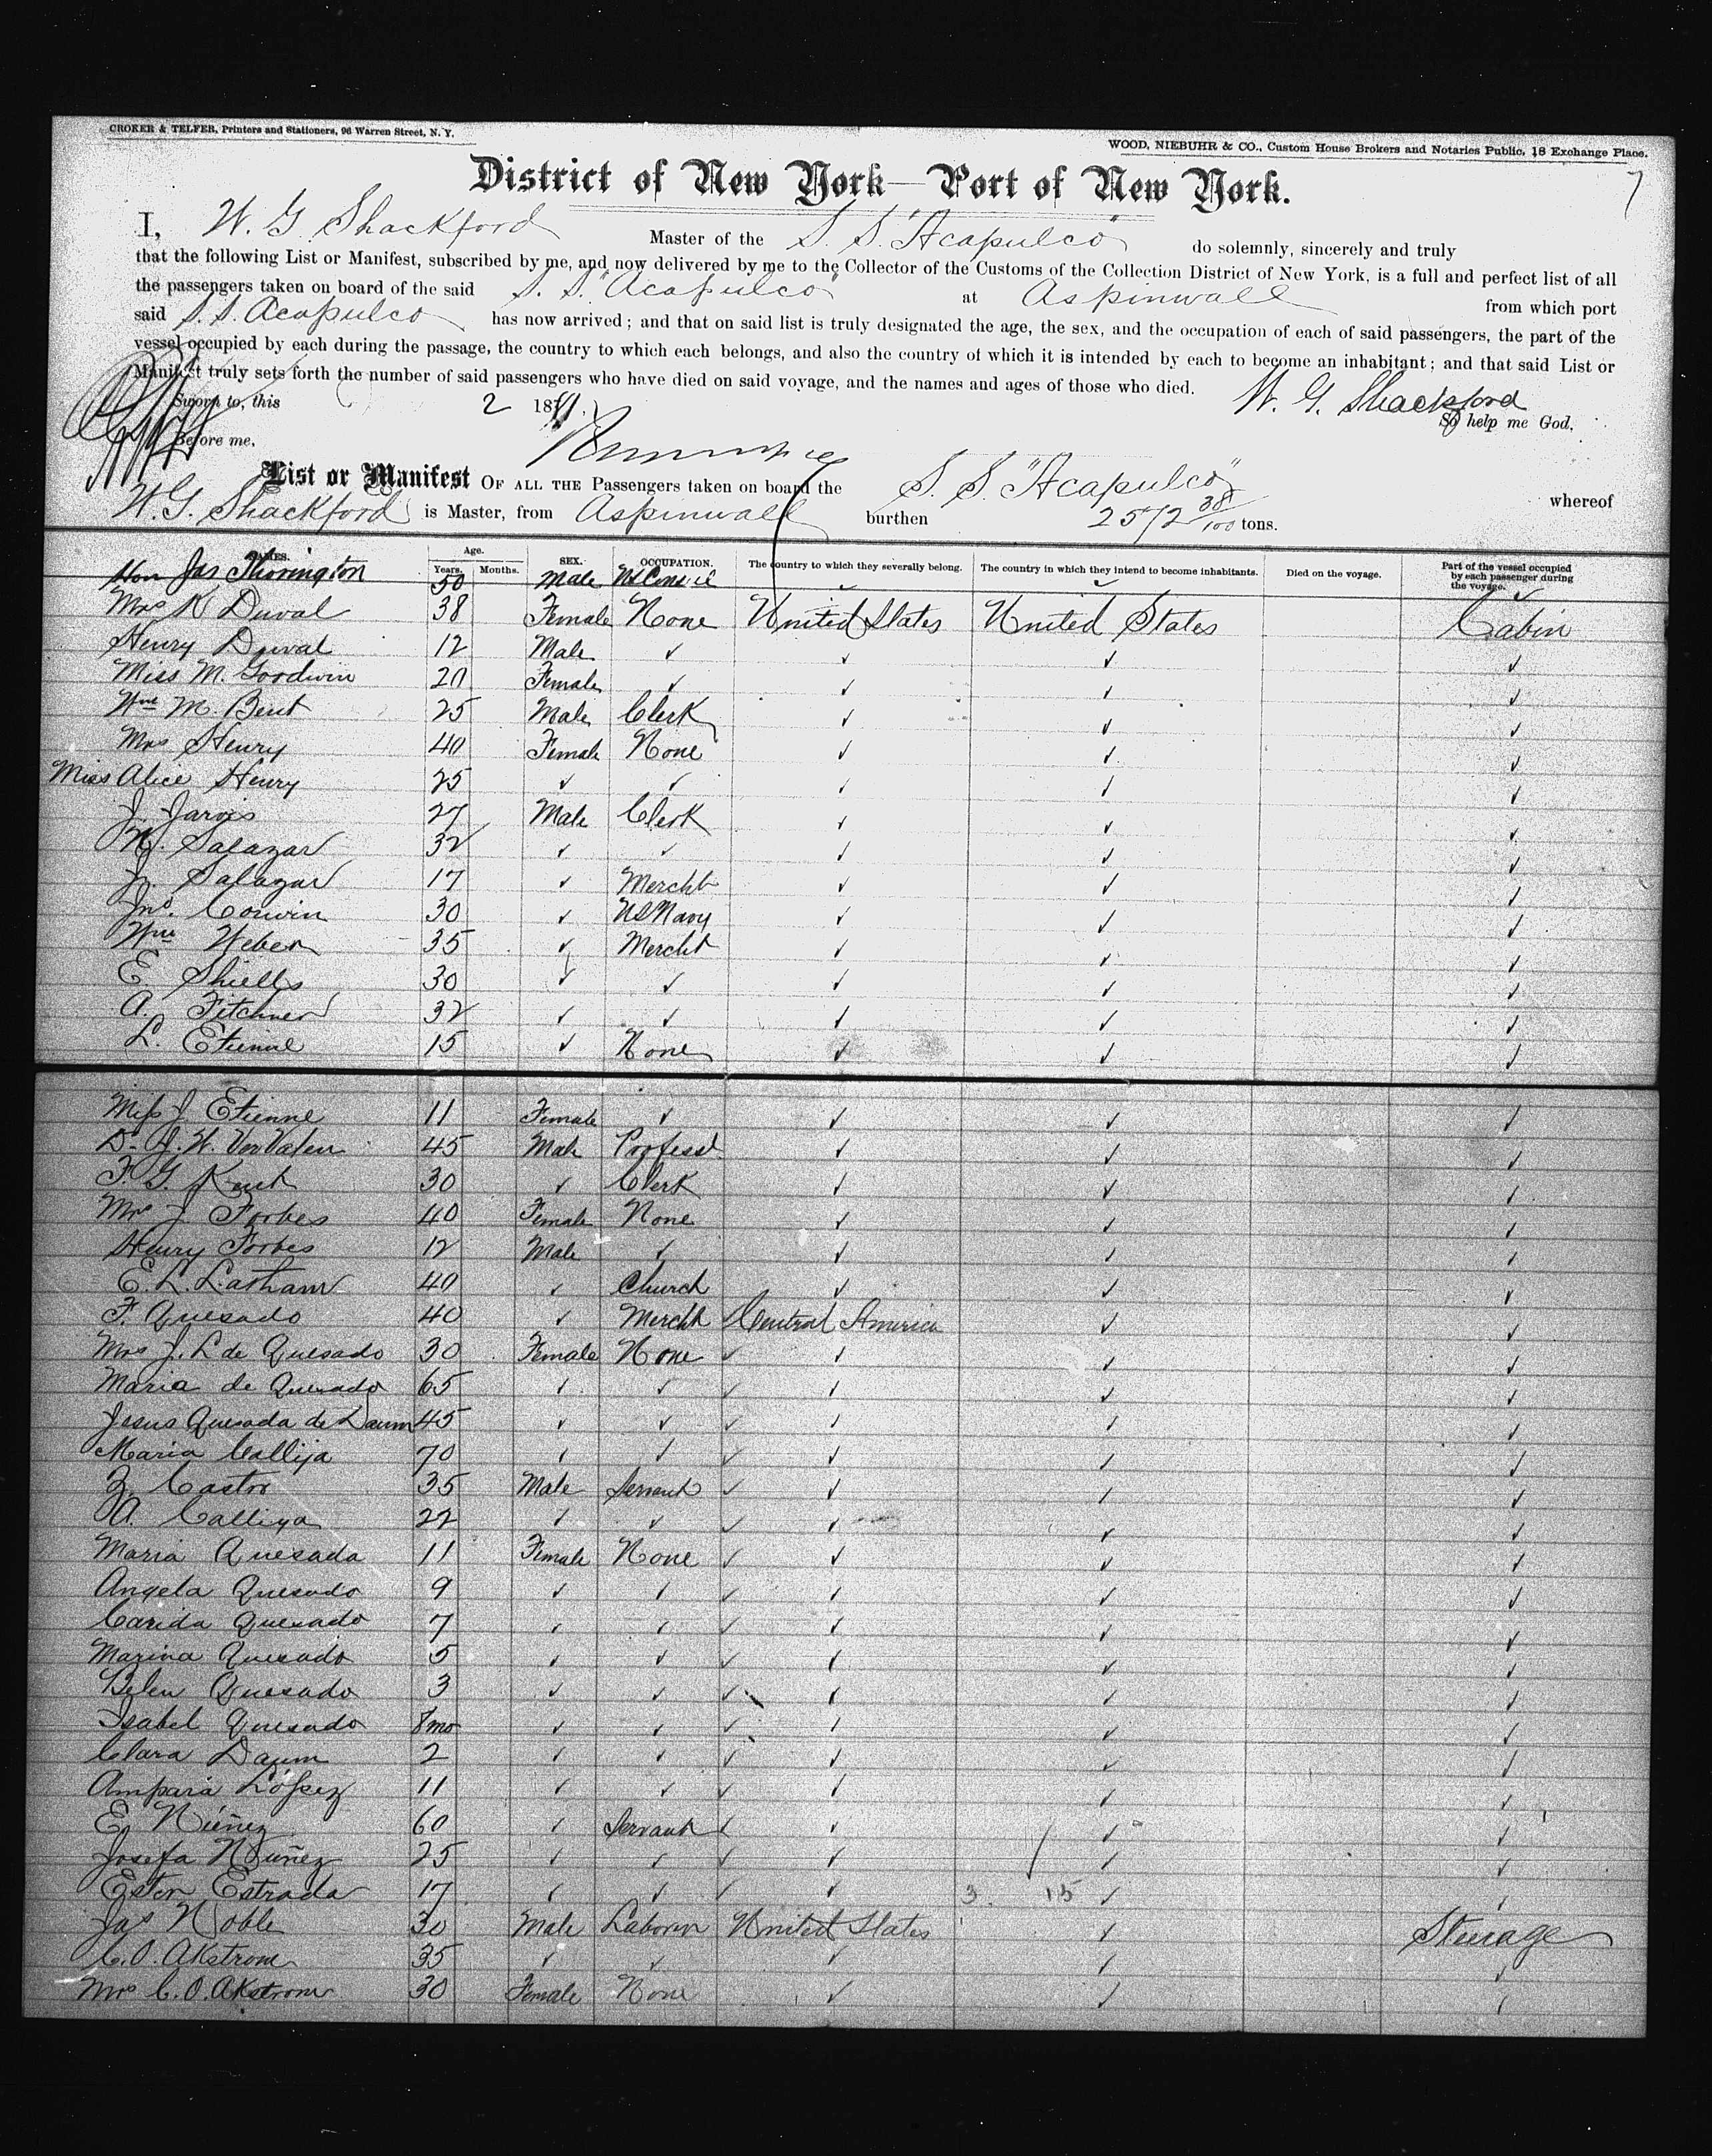 CROKER & TELFER, Printers and Stationers, 96 Warren Street, N. Y.
WOOD, NIEBUHR & CO., Custom House Brokers and Notaries Public, 18 Exchange Place.
District of New York—Port of New York.
7
I, W. G. Shackford Master of the S. S. "Acapulco" do solemnly, sincerely and truly
that the following List or Manifest, subscribed by me, and now delivered by me to the Collector of the Customs of the Collection District of New York, is a full and perfect list of all
the passengers taken on board of the said S. S. "Acapulco" at Aspinwall from which port
said S. S. Acapulco has now arrived; and that on said list is truly designated the age, the sex, and the occupation of each of said passengers, the part of the
vessel occupied by each during the passage, the country to which each belongs, and also the country of which it is intended by each to become an inhabitant; and that said List or
Manifest truly sets forth the number of said passengers who have died on said voyage, and the names and ages of those who died.
W. G. Shackford
Sworn to, this 2 18
So help me God,
Before me,
List or Manifest OF ALL THE Passengers taken on board the S. S. "Acapulco" whereof
W. G. Shackford is Master, from Aspinwall burthen 2572 38/100 tons.
NAMES. Age. Years. Months. SEX. OCCUPATION. The country to which they severally belong. The country in which they intend to become inhabitants. Died on the voyage. Part of the vessel occupied by each passenger during the voyage.
Hon Jas Thorington 50 Male US Consul ✓ ✓ ✓
Mrs K Duval 38 Female None United States United States Cabin
Henry Duval 12 Male ✓ ✓ ✓ ✓
Miss M. Goodwin 20 Female ✓ ✓ ✓ ✓
Wm M. Bent 25 Male Clerk ✓ ✓ ✓
Mrs Henry 40 Female None ✓ ✓ ✓
Miss Alice Henry 25 ✓ ✓ ✓ ✓ ✓
J. Jarvis 27 Male Clerk ✓ ✓ ✓
N. Salazar 32 ✓ ✓ ✓ ✓ ✓
J. Salazar 17 ✓ Mercht ✓ ✓ ✓
Jno. Corwin 30 ✓ US Navy ✓ ✓ ✓
Wm Weber 35 ✓ Mercht ✓ ✓ ✓
E Shiells 30 ✓ ✓ ✓ ✓ ✓
A. Fitchner 32 ✓ ✓ ✓ ✓ ✓
L. Etienne 15 ✓ None ✓ ✓ ✓
Miss J. Etienne 11 Female ✓ ✓ ✓ ✓
Dr J. W. VerValen 45 Male Professl ✓ ✓ ✓
F. G. Kent 30 ✓ Clerk ✓ ✓ ✓
Mrs J. Forbes 40 Female None ✓ ✓ ✓
Henry Forbes 12 Male ✓ ✓ ✓ ✓
E. L. Latham 40 ✓ Church ✓ ✓ ✓
F. Quesado 40 ✓ Mercht Central America ✓ ✓
Mrs J. L de Quesado 30 Female None ✓ ✓ ✓ ✓
Maria de Quesado 65 ✓ ✓ ✓ ✓ ✓ ✓
Jesus Quesada de Daum 45 ✓ ✓ ✓ ✓ ✓ ✓
Maria Callija 70 ✓ ✓ ✓ ✓ ✓ ✓
Z. Castor 35 Male Servant ✓ ✓ ✓ ✓
A. Calliya 22 ✓ ✓ ✓ ✓ ✓ ✓
Maria Quesada 11 Female None ✓ ✓ ✓ ✓
Angela Quesado 9 ✓ ✓ ✓ ✓ ✓ ✓
Carida Quesado 7 ✓ ✓ ✓ ✓ ✓ ✓
Marina Quesado 5 ✓ ✓ ✓ ✓ ✓ ✓
Belen Quesado 3 ✓ ✓ ✓ ✓ ✓ ✓
Isabel Quesado 8mo ✓ ✓ ✓ ✓ ✓ ✓
Clara Daum 2 ✓ ✓ ✓ ✓ ✓ ✓
Ampara Lopez 11 ✓ ✓ ✓ ✓ ✓ ✓
E. Nuñez 60 ✓ Servant ✓ ✓ ✓ ✓
Josefa Nuñez 25 ✓ ✓ ✓ ✓ ✓ ✓
Ester Estrada 17 ✓ ✓ ✓ ✓ 3 15 ✓ ✓
Jas Noble 30 Male Laborer United States ✓ Steerage
C. O. Akstrom 35 ✓ ✓ ✓ ✓ ✓
Mrs C. O. Akstrom 30 Female None ✓ ✓ ✓